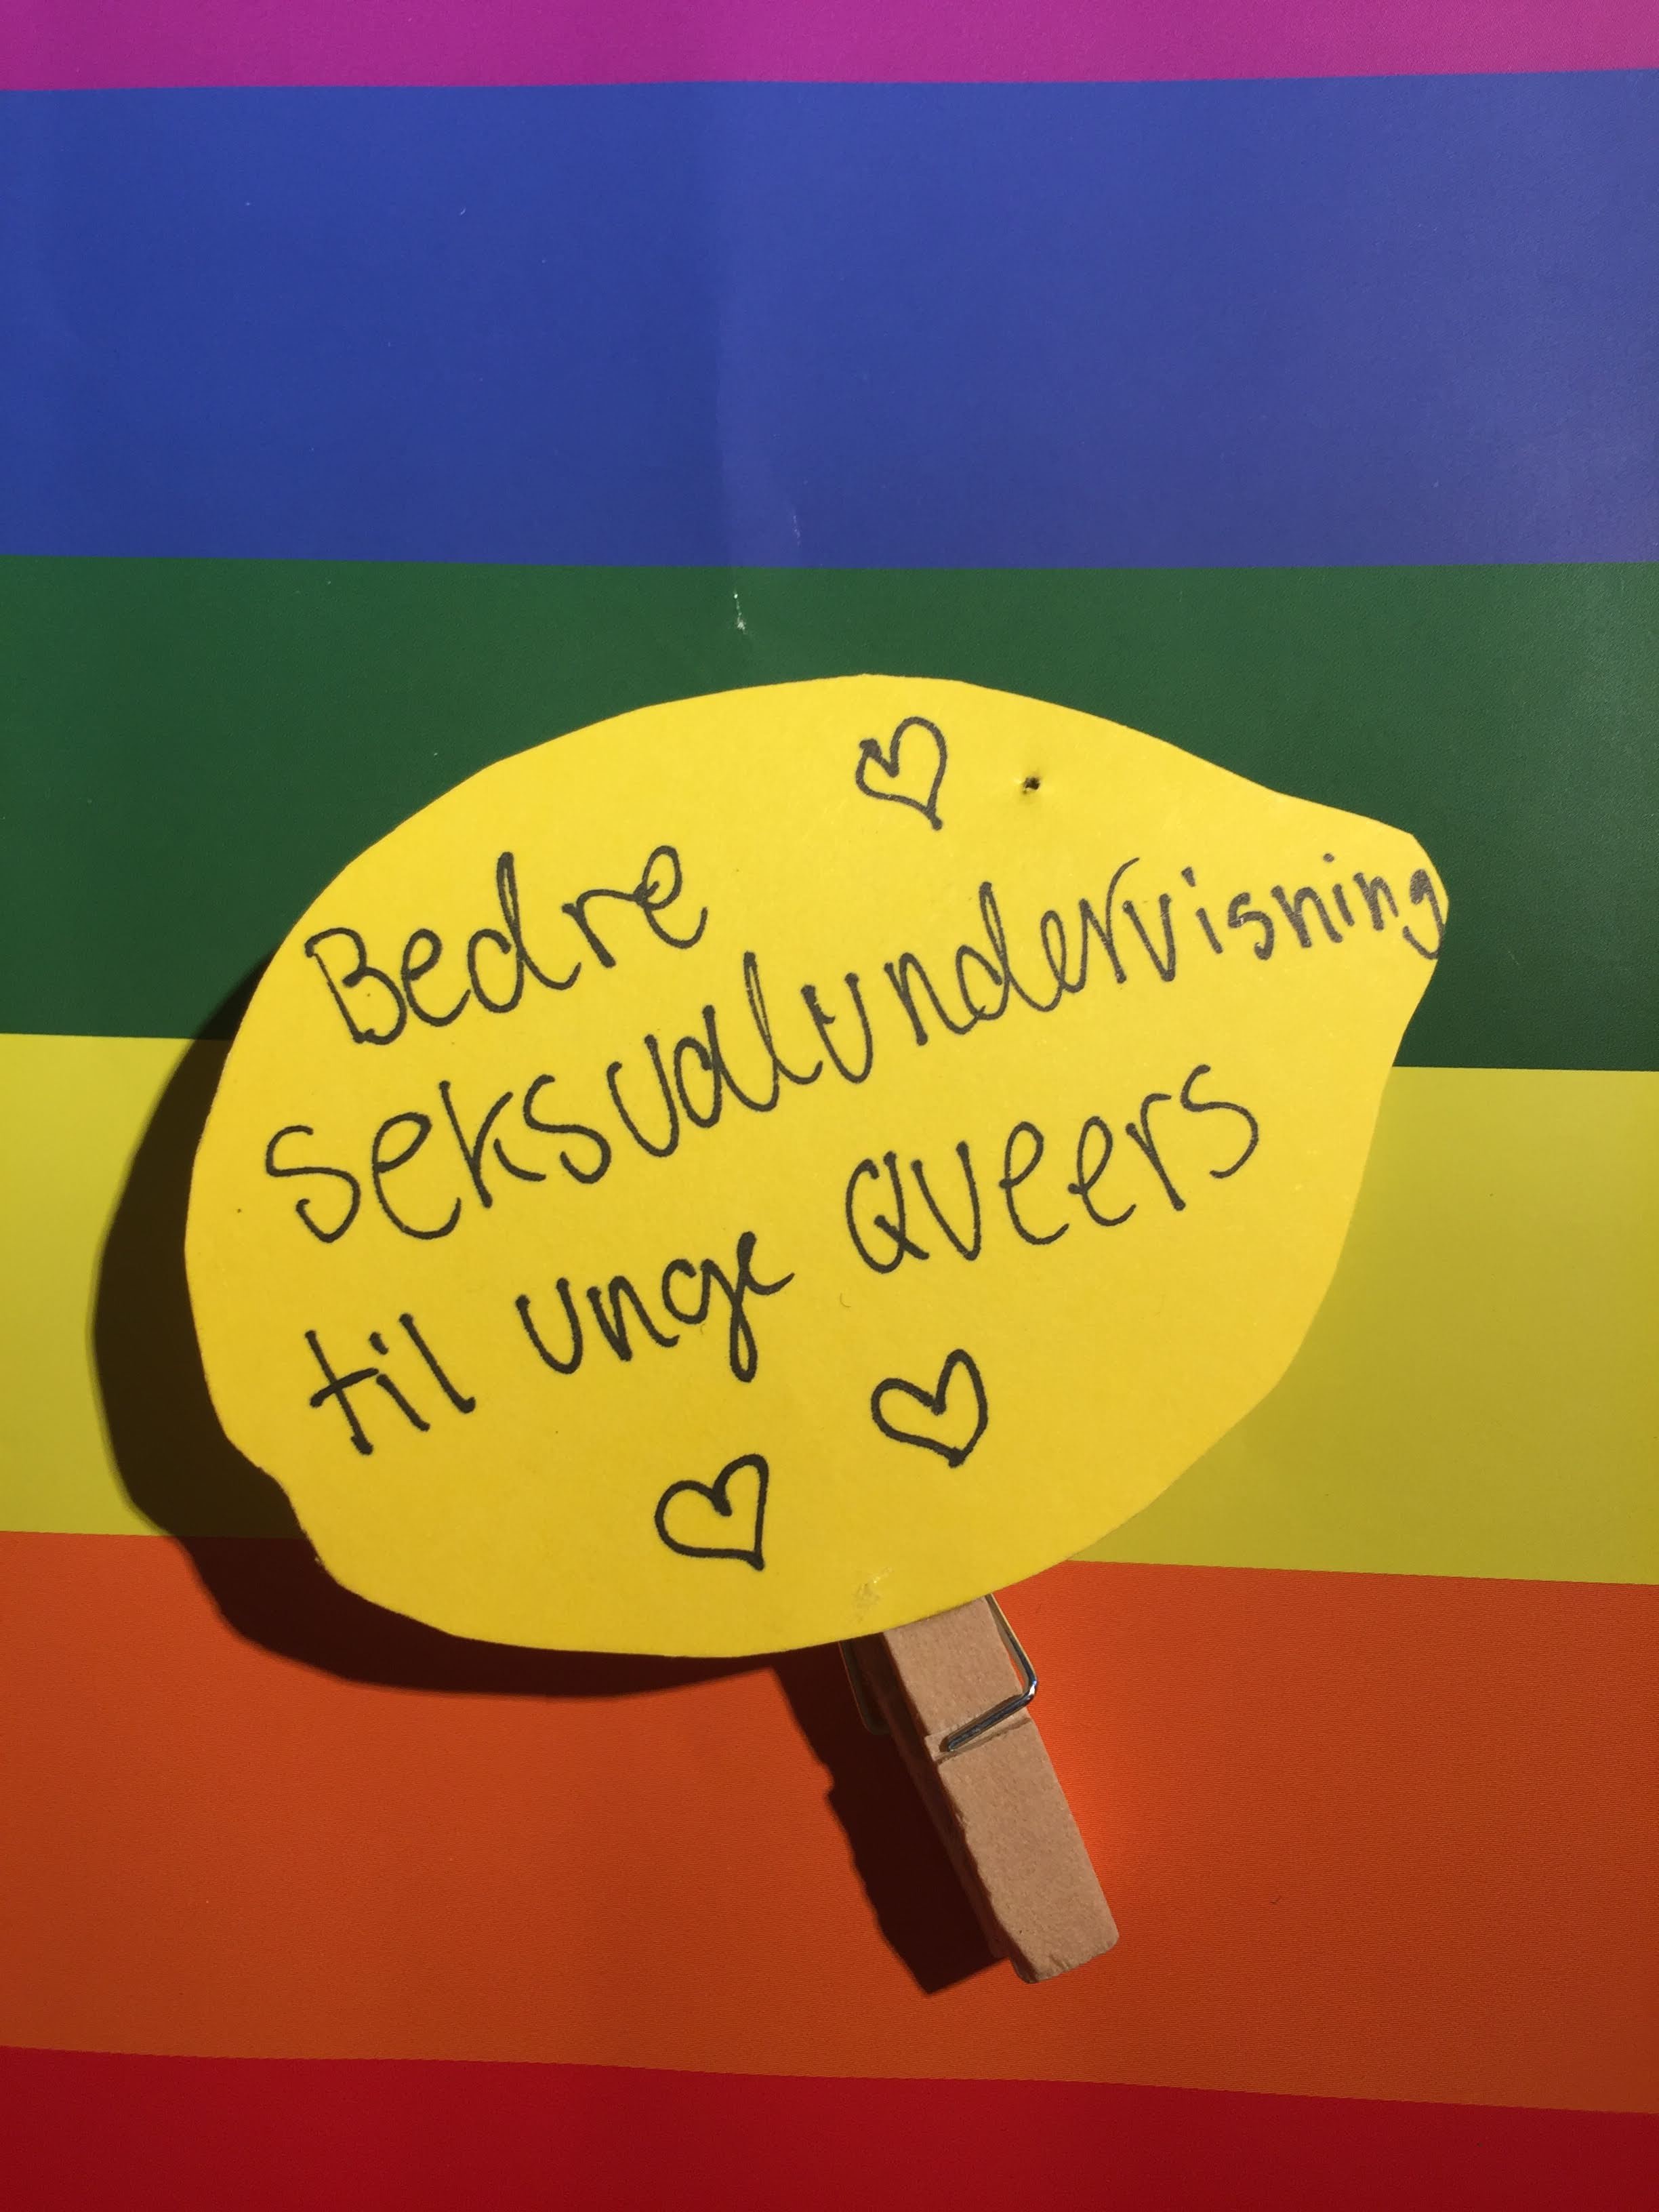 Bedre
seksualundervisning
til unge Queers